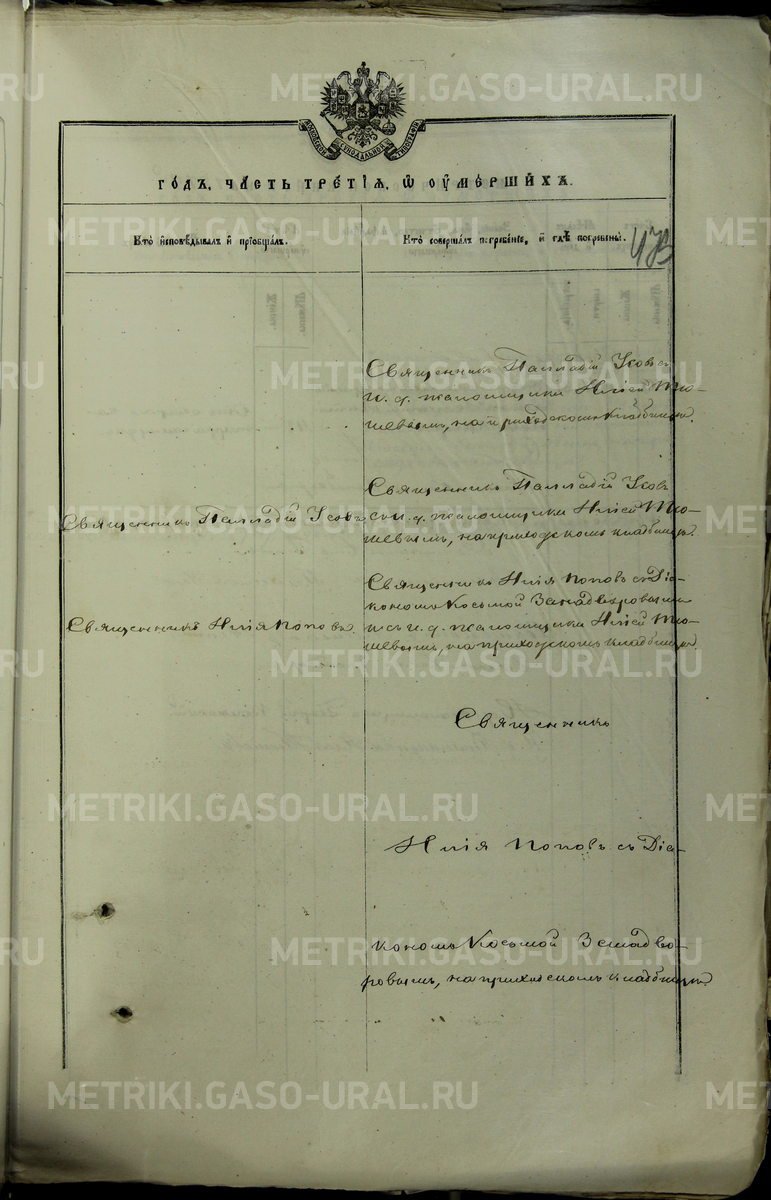 МОСКОВСКОЙ СѴНОДАЛЬНОЙ ТИПОГРАФІИ
ГО́ДЪ, ЧА́СТЬ ТРЕ́ТІѦ, Ѡ҆ ОУ҆МЕ́РШИХЪ.
Кто̀ и҆сповѣ́дывалъ и҆ прїѡбща́лъ.
Кто̀ соверша́лъ погребе́нїе, и҆ гдѣ̀ погребены̀.
Священникъ Палладій Усовъ съ
и. д. псаломщика Иліей Тю-
шевымъ, на приходскомъ кладбищѣ.
Священникъ Палладій Усовъ
Священникъ Палладій Усовъ
съ и. д. псаломщика Иліей Тю-
шевымъ, на приходскомъ кладбищѣ.
Священникъ Илія Поповъ.
Священникъ Илія Поповъ съ Діа-
кономъ Косьмой Западворовымъ
и съ и. д. псаломщика Иліей Тю-
шевымъ, на приходскомъ кладбищѣ.
Священникъ
Илія Поповъ съ Діа-
кономъ Косьмой Западво-
ровымъ, на приходскомъ кладбищѣ.
METRIKI.GASO-URAL.RU